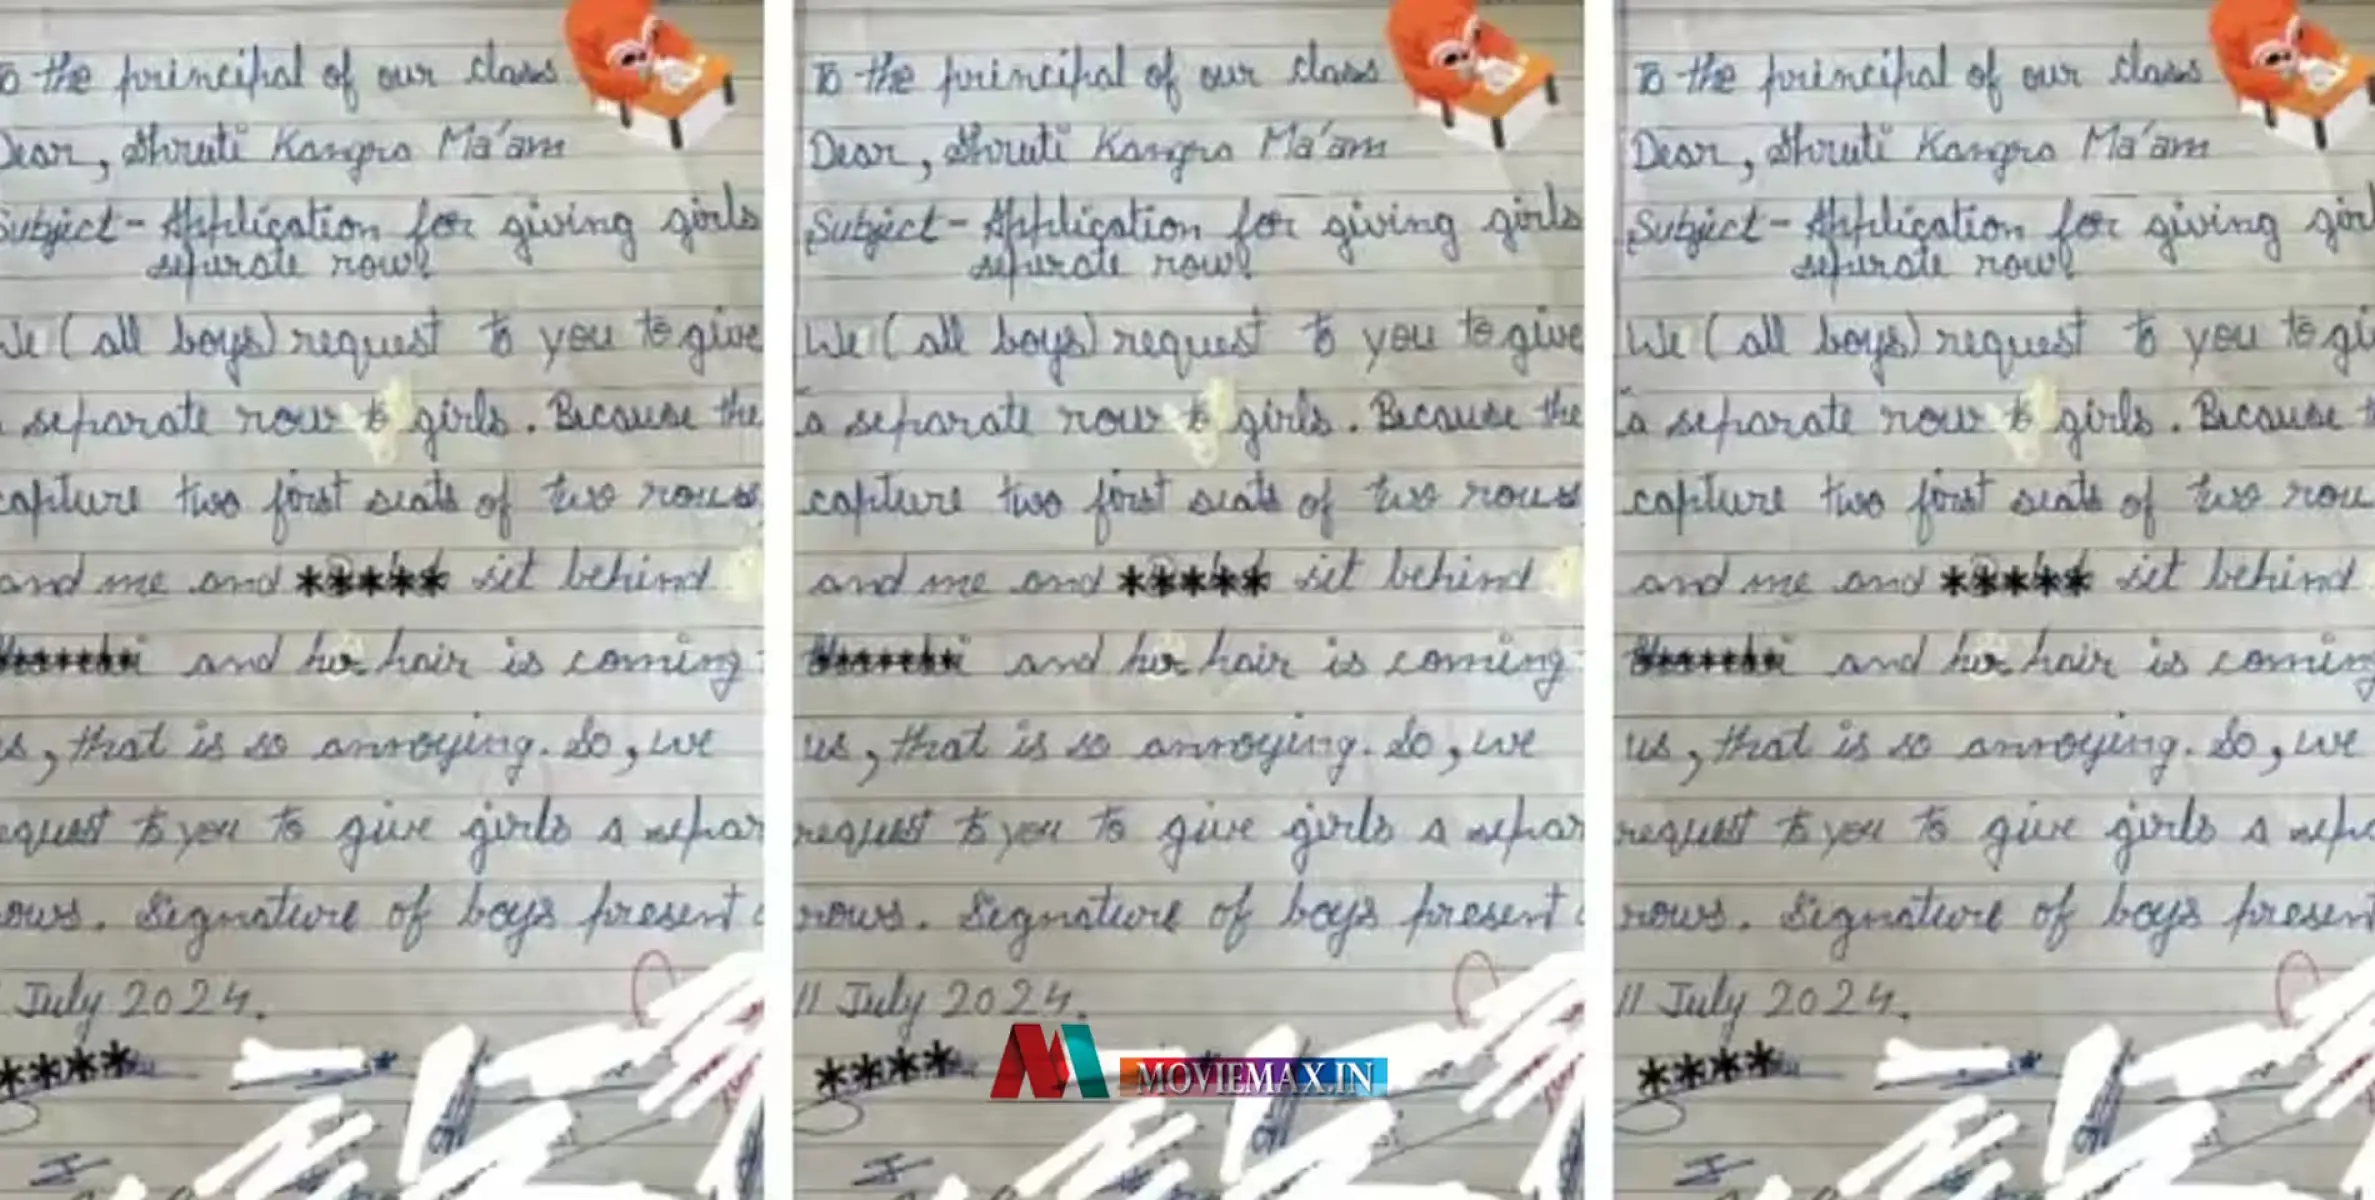 To the principal of our class
Dear, Shruti Kangra Ma'am
Subject - Application for giving girls
separate row
We (all boys) request to you to give
separate row to girls. Because the
capture two first seats of two rows
and me and ***** sit behind
and her hair is coming
us, that is so annoying. So, we
request to you to give girls a separ
rows. Signature of boys present
July 2024.
****
To the principal of our class
Dear, Shruti Kangra Ma'am
Subject - Application for giving girls
separate row
We (all boys) request to you to give
a separate row to girls. Because the
capture two first seats of two rows
and me and ***** sit behind
and her hair is coming
us, that is so annoying. So, we
request to you to give girls a separ
rows. Signature of boys present
11 July 2024.
****
MOVIEMAX.IN
To the principal of our class
Dear, Shruti Kangra Ma'am
Subject - Application for giving girl
separate row
We (all boys) request to you to gi
a separate row to girls. Because t
capture two first seats of two rou
and me and ***** sit behind
and her hair is coming
us, that is so annoying. So, we
request to you to give girls a sepa
rows. Signature of boys present
11 July 2024.
****